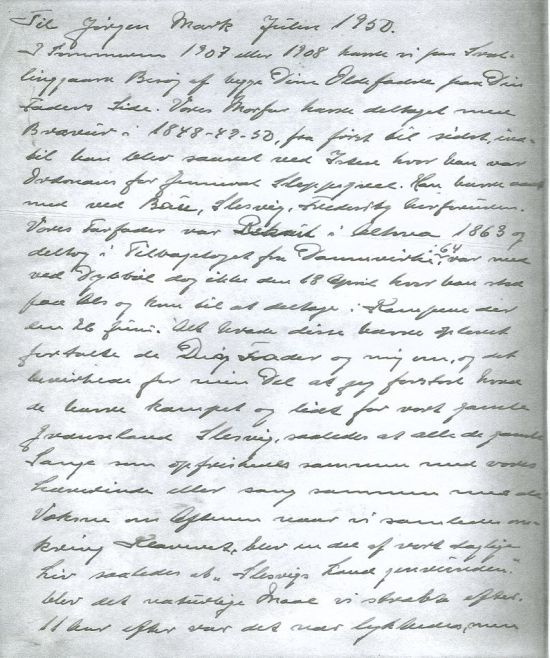 Til Jørgen Mark Julen 1950.
I Sommeren 1907 eller 1908 havde vi paa Sval-
linggaard Besøg af begge Dine Oldefædre paa Din
Faders Side. Vores Morfar havde deltaget med
Bravour i 1848-49-50, fra først til sidst, ind-
til han blev saaret ved Isted hvor han var
Ordonans for General Sleppegrell. Han havde været
med ved Bau, Slesvig, Fredericia
Vores Farfader var Rekrut i Altona 1863 og
deltog i Tilbagetoget fra Dannevirke i 64, var med
ved Dybbøl dog ikke den 18 April hvor han stod
paa Als og kom til at deltage i Kampene der
den 26 Juni. Alt hvad disse havde oplevet
fortalte de Dig Fader og mig om, og det
bevirkede for min Del at jeg forstod hvad
de havde kæmpet og lidt for vort gamle
Grænseland Slesvig, saaledes at alle de gamle
Sange som opfriskedes sammen med vores
Lærerinde eller sang sammen med de
Voksne om Aftenen naar vi samledes om-
kring Klaveret, blev en del af vort daglige
Liv saaledes at "Slesvigs Land genvundet"
blev det naturlige Maal vi stræbte efter.
11 Aar efter var det nær lykkedes, men